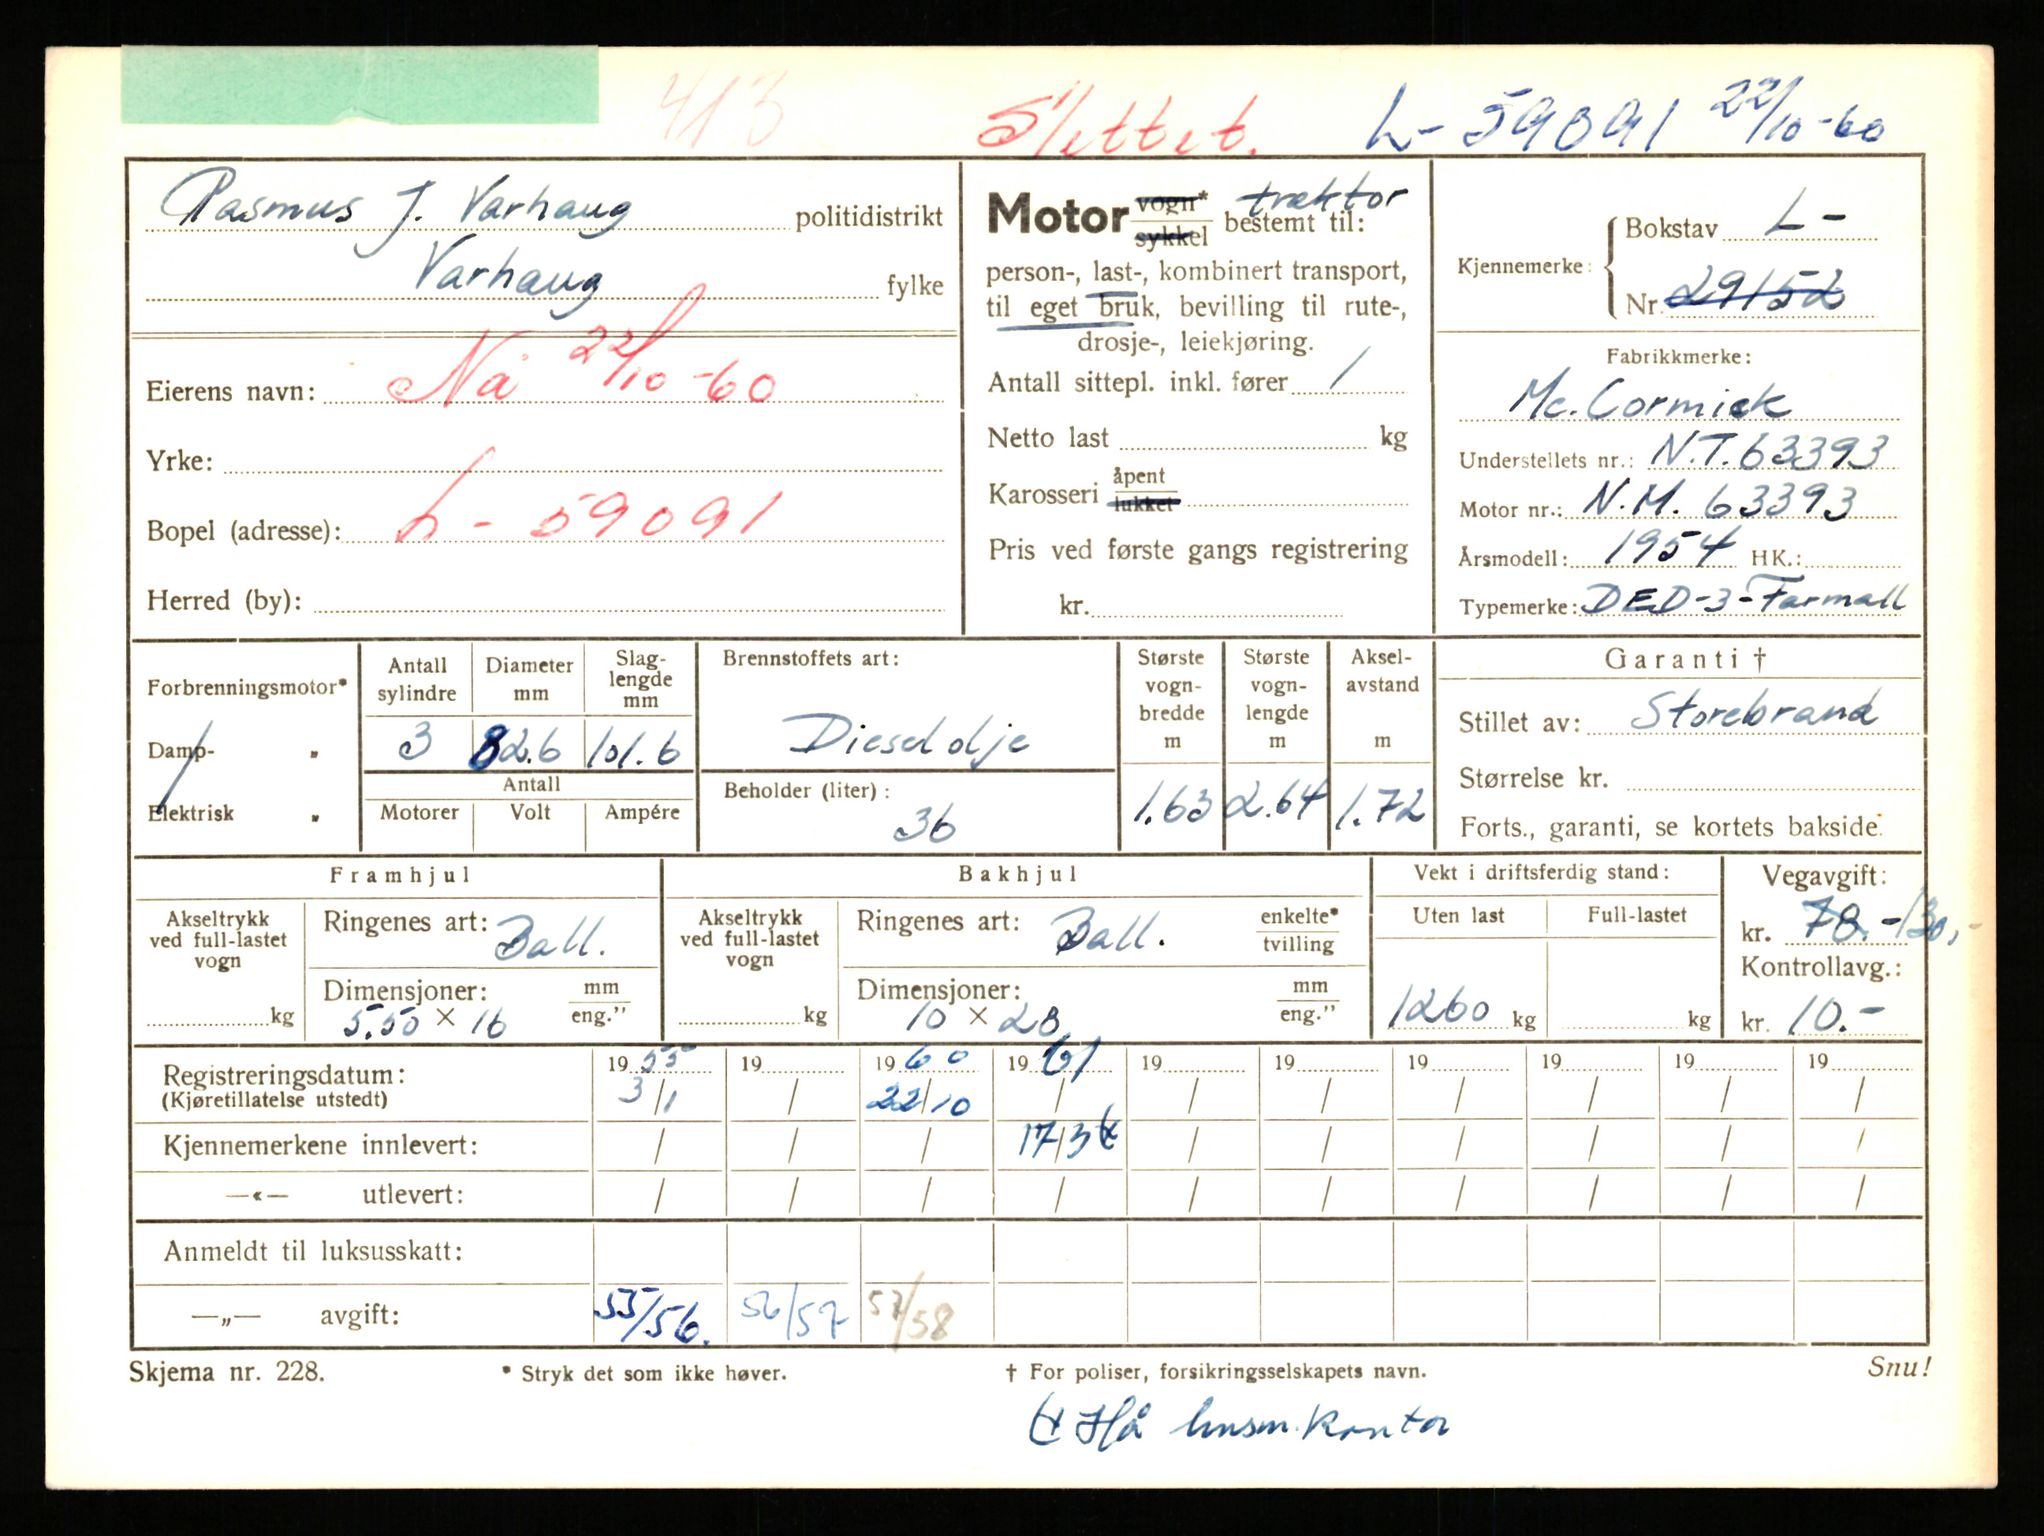 413 Slettet. L- 59091 22/10-60
Rasmus J. Varhaug politidistrikt
Varhaug fylke
Eierens navn: Nå 22/10-60
Yrke:
Bopel (adresse): L- 59091
Herred (by):
Motor vogn* sykkel bestemt til: traktor
person-, last-, kombinert transport,
til eget bruk, bevilling til rute-,
drosje-, leiekjøring.
Antall sittepl. inkl. fører 1
Netto last kg
Karosseri åpent lukket
Pris ved første gangs registrering
kr.
Kjennemerke: Bokstav L-
Nr. 29152
Fabrikkmerke:
Mc. Cormick
Understellets nr.: N.T. 63393
Motor nr.: N.M. 63393
Årsmodell: 1954 HK.:
Typemerke: DED-3-Farmall
Forbrenningsmotor*
Damp- „
Elektrisk „
Antall sylindre 3
Diameter mm 82.6
Slag-lengde mm 101.6
Antall
Motorer Volt Ampére
Brennstoffets art:
Dieselolje
Beholder (liter):
36
Største vogn-bredde m 1.63
Største vogn-lengde m 2.64
Aksel-avstand m 1.72
Garanti †
Stillet av: Storebrand
Størrelse kr.
Forts., garanti, se kortets bakside.
Framhjul
Akseltrykk ved full-lastet vogn kg
Ringenes art: Ball.
Dimensjoner: mm eng."
5.50 × 16
Bakhjul
Akseltrykk ved full-lastet vogn kg
Ringenes art: Ball. enkelte* tvilling
Dimensjoner: mm eng."
10 × 28
Vekt i driftsferdig stand:
Uten last Full-lastet
1260 kg kg
Vegavgift:
kr. 78.- 130,-
Kontrollavg.:
kr. 10.-
Registreringsdatum: 1955 19 1960 1961 19 19 19 19 19 19
(Kjøretillatelse utstedt) 3/1 / 22/10 / / / / / / /
Kjennemerkene innlevert: / / / 17/3 / / / / / /
—«— utlevert: / / / / / / / / / /
Anmeldt til luksusskatt:
—„— avgift: 55/56. 56/57 57/58
Skjema nr. 228. * Stryk det som ikke høver. † For poliser, forsikringsselskapets navn. Snu!
Hå lensm. kontor